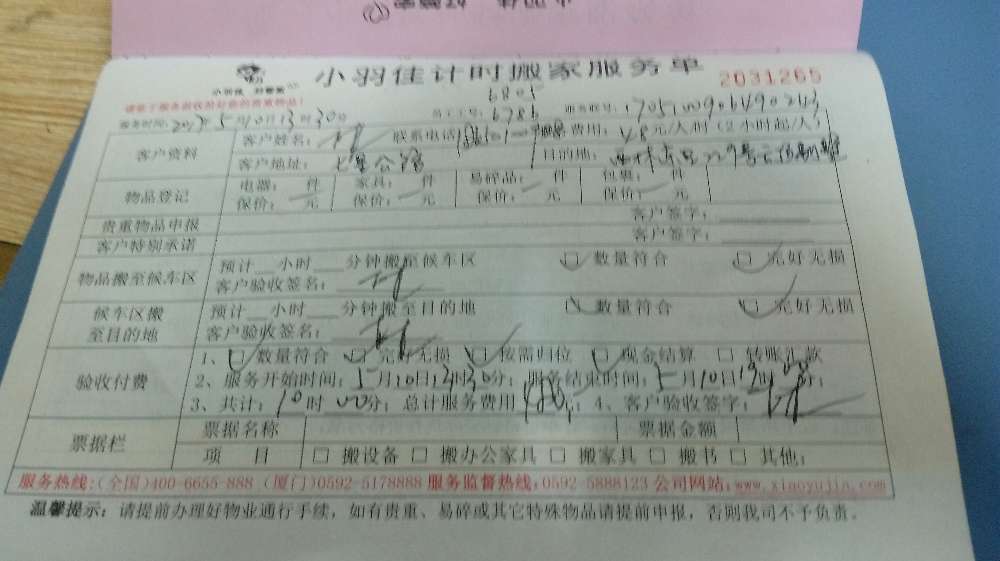 小羽佳计时搬家服务单
2031265
6805
服务时间:2017年5月10日13时30分 员工工号:6786 服务帐号:1705100906490243
客户资料 客户姓名: 联系电话 费用:48元/人/时(2小时起/人)
客户地址:七星公路 目的地:
物品登记 电器: 件 家具: 件 易碎品: 件 包裹: 件
保价: 元 保价: 元 保价: 元 保价: 元
贵重物品申报 客户签字:
客户特别承诺 客户签字:
物品搬至候车区 预计 小时 分钟搬至候车区 数量符合 完好无损
客户验收签名:
候车区搬至目的地 预计 小时 分钟搬至目的地 数量符合 完好无损
客户验收签名:
验收付费 1、数量符合 完好无损 按需归位 现金结算 □ 转账汇款
2、服务开始时间:5月10日13时30分; 服务结束时间:5月10日19时00分;
3、共计:10时00分; 总计服务费用 480; 4、客户验收签字:
票据栏 票据名称 票据金额
项 目 □ 搬设备 □ 搬办公家具 □ 搬家具 □ 搬书 □ 其他:
服务热线:(全国)400-6655-888 (厦门)0592-5178888 服务监督热线:0592-5888123 公司网站:www.xiaoyujia.com
温馨提示: 请提前办理好物业通行手续, 如有贵重、易碎或其它特殊物品请提前申报, 否则我司不予负责。